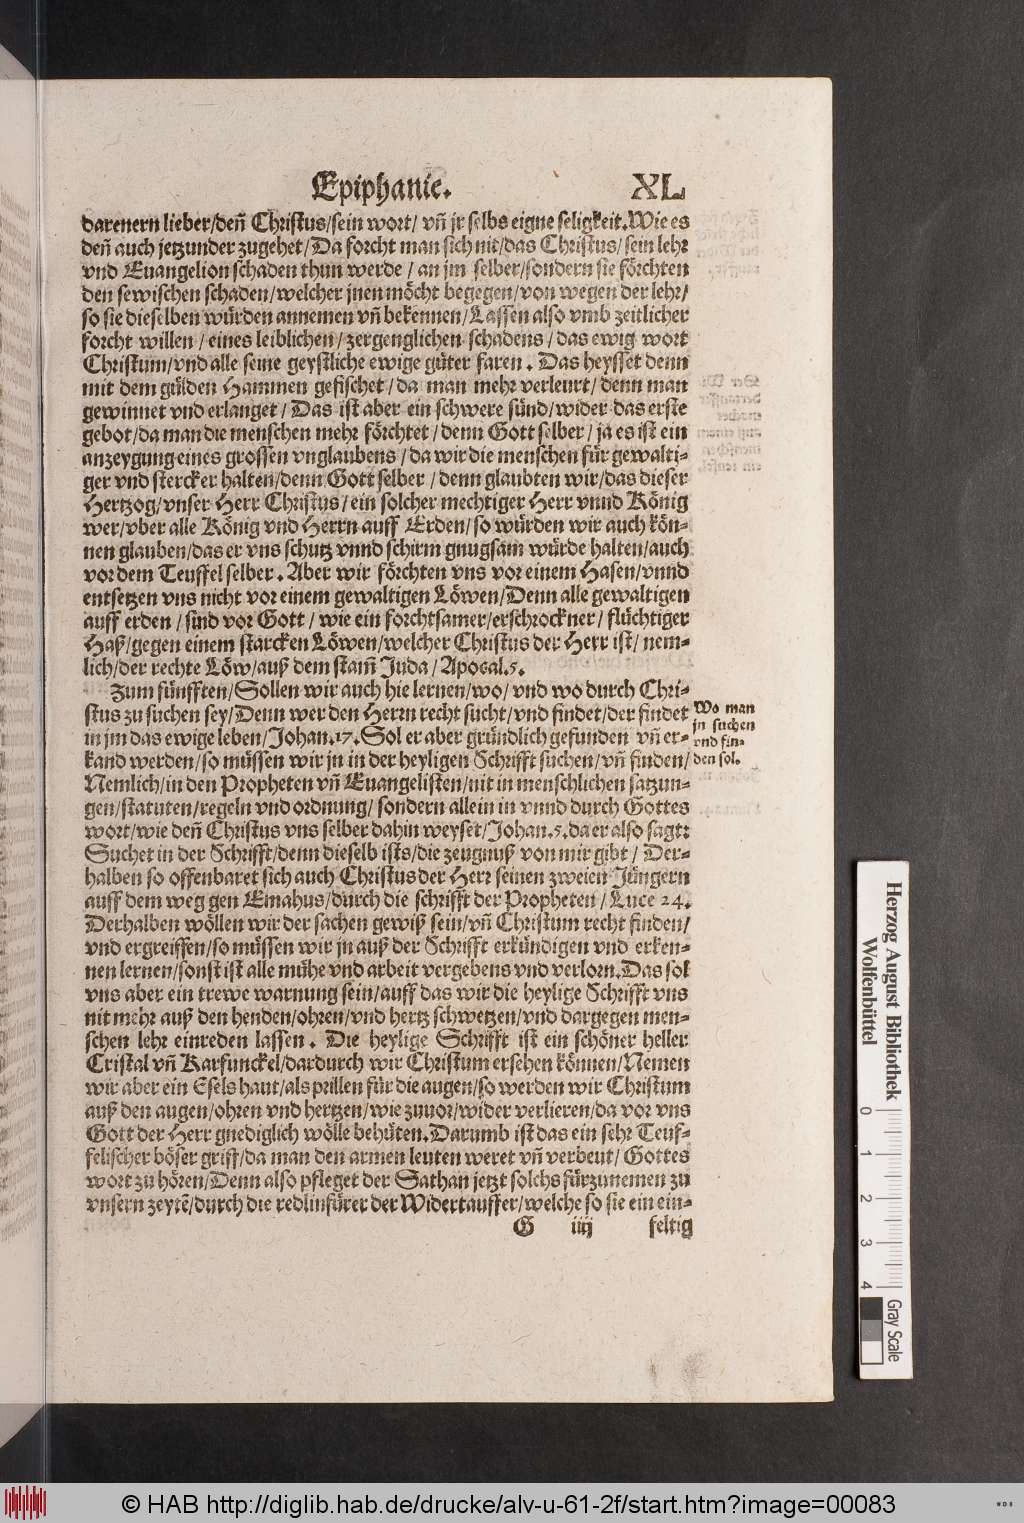 Epiphanie. XL
darenern lieber/deñ Christus/sein wort/ vñ jr selbs eigne seligkeit. Wie es
deñ auch jetzunder zugehet/ Da forcht man sich nit/das Christus/ sein lehr
vnd Euangelion schaden thun werde / an jm selber/sondern sie förchten
den sewischen schaden/welcher jnen möcht begegen/von wegen der lehr/
so sie dieselben würden annemen vñ bekennen/Lassen also vmb zeitlicher
forcht willen / eines leiblichen/ zergenglichen schadens / das ewig wort
Christum/vnd alle seine geystliche ewige güter faren . Das heysset denn
mit dem gülden Hammen gefischet / da man mehr verleurt/ denn man
gewinnet vnd erlanget / Das ist aber ein schwere sünd/wider das erste
gebot/da man die menschen mehr förchtet / denn Gott selber / ja es ist ein
anzeygung eines grossen vnglaubens / da wir die menschen für gewalti-
ger vnd stercker halten/denn Gott selber / denn glaubten wir/das dieser
Hertzog/vnser Herr Christus / ein solcher mechtiger Herr vnnd König
wer/vber alle König vnd Herrn auff Erden/ so würden wir auch kön-
nen glauben/das er vns schutz vnnd schirm gnugsam würde halten/auch
vor dem Teuffel selber . Aber wir förchten vns vor einem Hasen/vnnd
entsetzen vns nicht vor einem gewaltigen Löwen/Denn alle gewaltigen
auff erden / sind vor Gott / wie ein forchtsamer/erschrockner / flüchtiger
Haß/gegen einem starcken Löwen/welcher Christus der Herr ist/ nem-
lich/der rechte Löw/auß dem stam̃ Juda / Apocal.5.
Zum fünfften/Sollen wir auch hie lernen/wo/ vnd wo durch Chri-
stus zu suchen sey/Denn wer den Herrn recht sucht/vnd findet/der findet
in jm das ewige leben/Johan.17. Sol er aber gründlich gefunden vñ er-
kand werden/so müssen wir jn in der heyligen Schrifft suchen/vñ finden/
Nemlich/in den Propheten vñ Euangelisten/nit in menschlichen satzun-
gen/statuten/regeln vnd ordnung/ sondern allein in vnnd durch Gottes
wort/wie deñ Christus vns selber dahin weyset/Johan.5.da er also sagt:
Suchet in der Schrifft/denn dieselb ists/die zeugnuß von mir gibt / Der-
halben so offenbaret sich auch Christus der Herr seinen zweien Jüngern
auff dem weg gen Emahus/durch die schrifft der Propheten / Luce 24.
Derhalben wöllen wir der sachen gewiß sein/vñ Christum recht finden/
vnd ergreiffen/so müssen wir jn auß der Schrifft erkündigen vnd erken-
nen lernen/sonst ist alle mühe vnd arbeit vergebens vnd verlorn. Das sol
vns aber ein trewe warnung sein/auff das wir die heylige Schrifft vns
nit mehr auß den henden/ohren/vnd hertz schwetzen/vnd dargegen men-
schen lehr einreden lassen . Die heylige Schrifft ist ein schöner heller
Cristal vñ Karfunckel/dardurch wir Christum ersehen können/Nemen
wir aber ein Esels haut/als prillen für die augen/so werden wir Christum
auß den augen/ohren vnd hertzen/wie zuuor/wider verlieren/da vor vns
Gott der Herr gnediglich wölle behüten. Darumb ist das ein sehr Teuf-
felischer böser griff/da man den armen leuten weret vñ verbeut/ Gottes
wort zu hören/Denn also pfleget der Sathan jetzt solchs fürzunemen zu
vnsern zeytẽ/durch die redlinfürer der Widertauffer/welche so sie ein ein-
G iiij feltig
Wo man
jn suchen
vnd fin-
den sol.
Herzog August Bibliothek
Wolfenbüttel
0 1 2 3 4
Gray Scale
© HAB http://diglib.hab.de/drucke/alv-u-61-2f/start.htm?image=00083